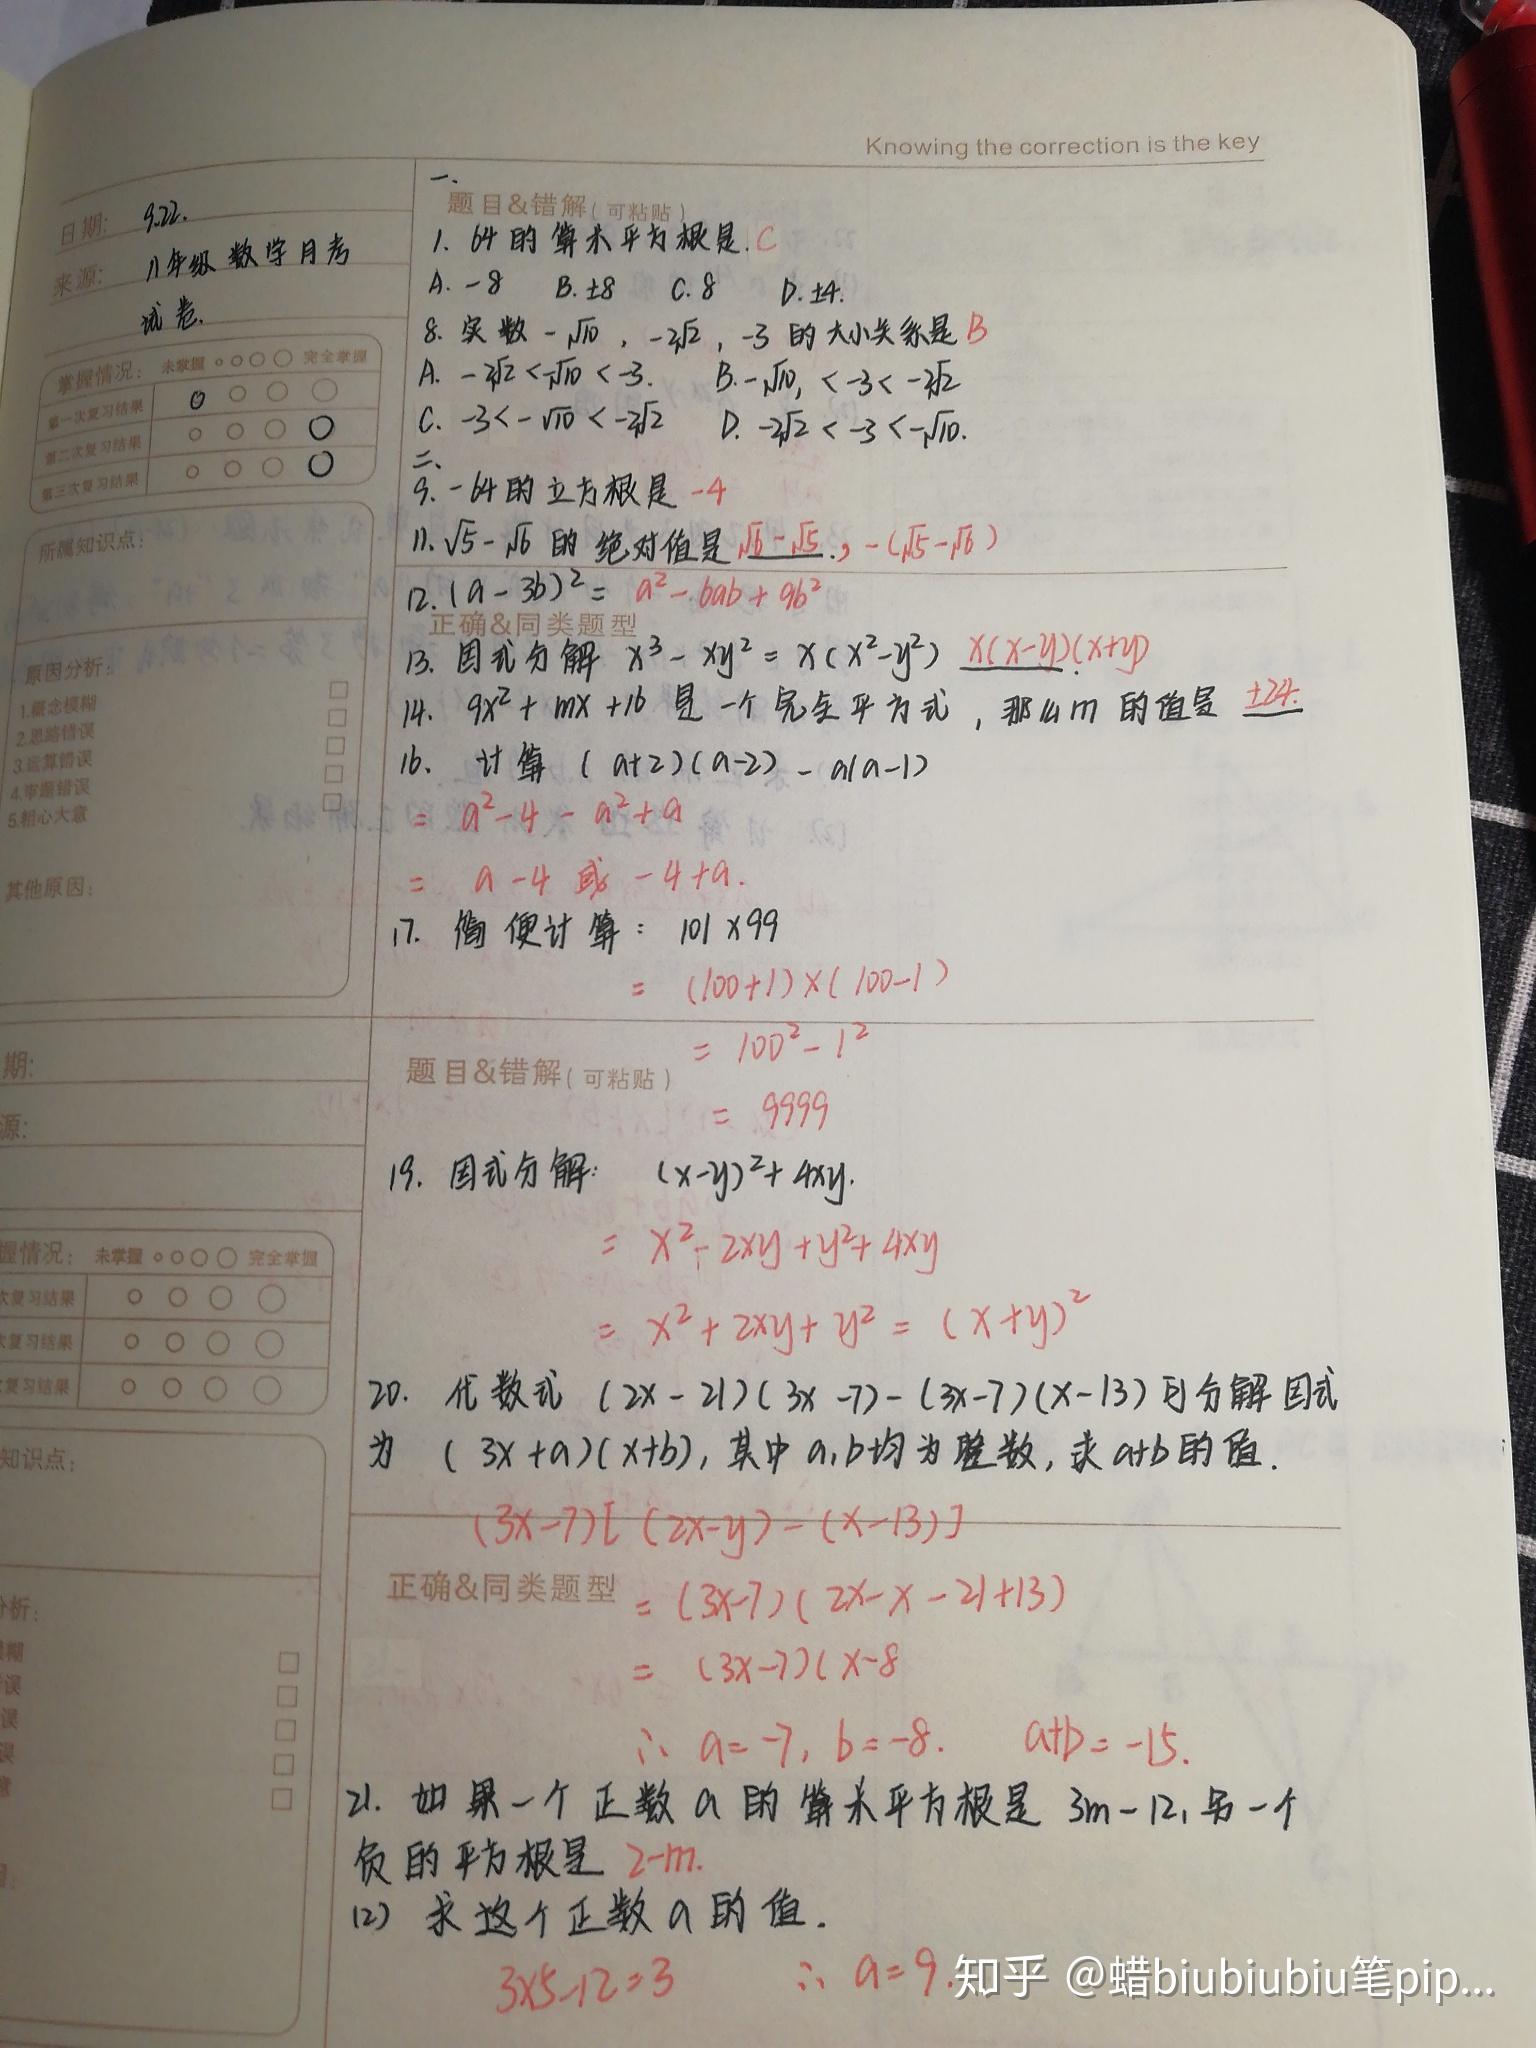 Knowing the correction is the key
日期: 9.22.
来源: 八年级数学月考
试卷.
掌握情况: 未掌握 完全掌握
第一次复习结果
第二次复习结果
第三次复习结果
所属知识点:
原因分析:
1.概念模糊
2.思路错误
3.运算错误
4.审题错误
5.粗心大意
其他原因:
一、
题目&错解(可粘贴)
1. 64的算术平方根是. C
A. -8 B. ±8 C. 8 D. ±4.
8. 实数 -√10, -2√2, -3 的大小关系是 B
A. -2√2 < -√10 < -3. B. -√10, < -3 < -2√2
C. -3 < -√10 < -2√2 D. -2√2 < -3 < -√10.
二、
9. -64的立方根是 -4
11. √5-√6 的绝对值是 √6-√5., -(√5-√6)
12. (a-3b)² = a²-6ab+9b²
正确&同类题型
13. 因式分解 x³-xy² = x(x²-y²) x(x-y)(x+y).
14. 9x²+mx+16 是一个完全平方式, 那么m的值是 ±24.
16. 计算 (a+2)(a-2)-a(a-1)
= a²-4-a²+a
= a-4 或 -4+a.
17. 简便计算: 101×99
= (100+1)×(100-1)
= 100²-1²
= 9999
期:
源:
题目&错解(可粘贴)
19. 因式分解: (x-y)²+4xy.
= x²-2xy+y²+4xy
= x²+2xy+y² = (x+y)²
握情况: 未掌握 完全掌握
次复习结果
次复习结果
次复习结果
知识点:
20. 代数式 (2x-21)(3x-7)-(3x-7)(x-13) 可分解因式
为 (3x+a)(x+b), 其中a,b均为整数, 求a+b的值.
(3x-7)[(2x-y)-(x-13)]
正确&同类题型
= (3x-7)(2x-x-21+13)
= (3x-7)(x-8
∴ a=-7, b=-8. a+b=-15.
分析:
模糊
错误
误
误
意
21. 如果一个正数a的算术平方根是 3m-12, 另一个
负的平方根是 2-m.
(2) 求这个正数a的值.
3×5-12=3 ∴ a=9.
知乎 @蜡biubiubiu笔pip...